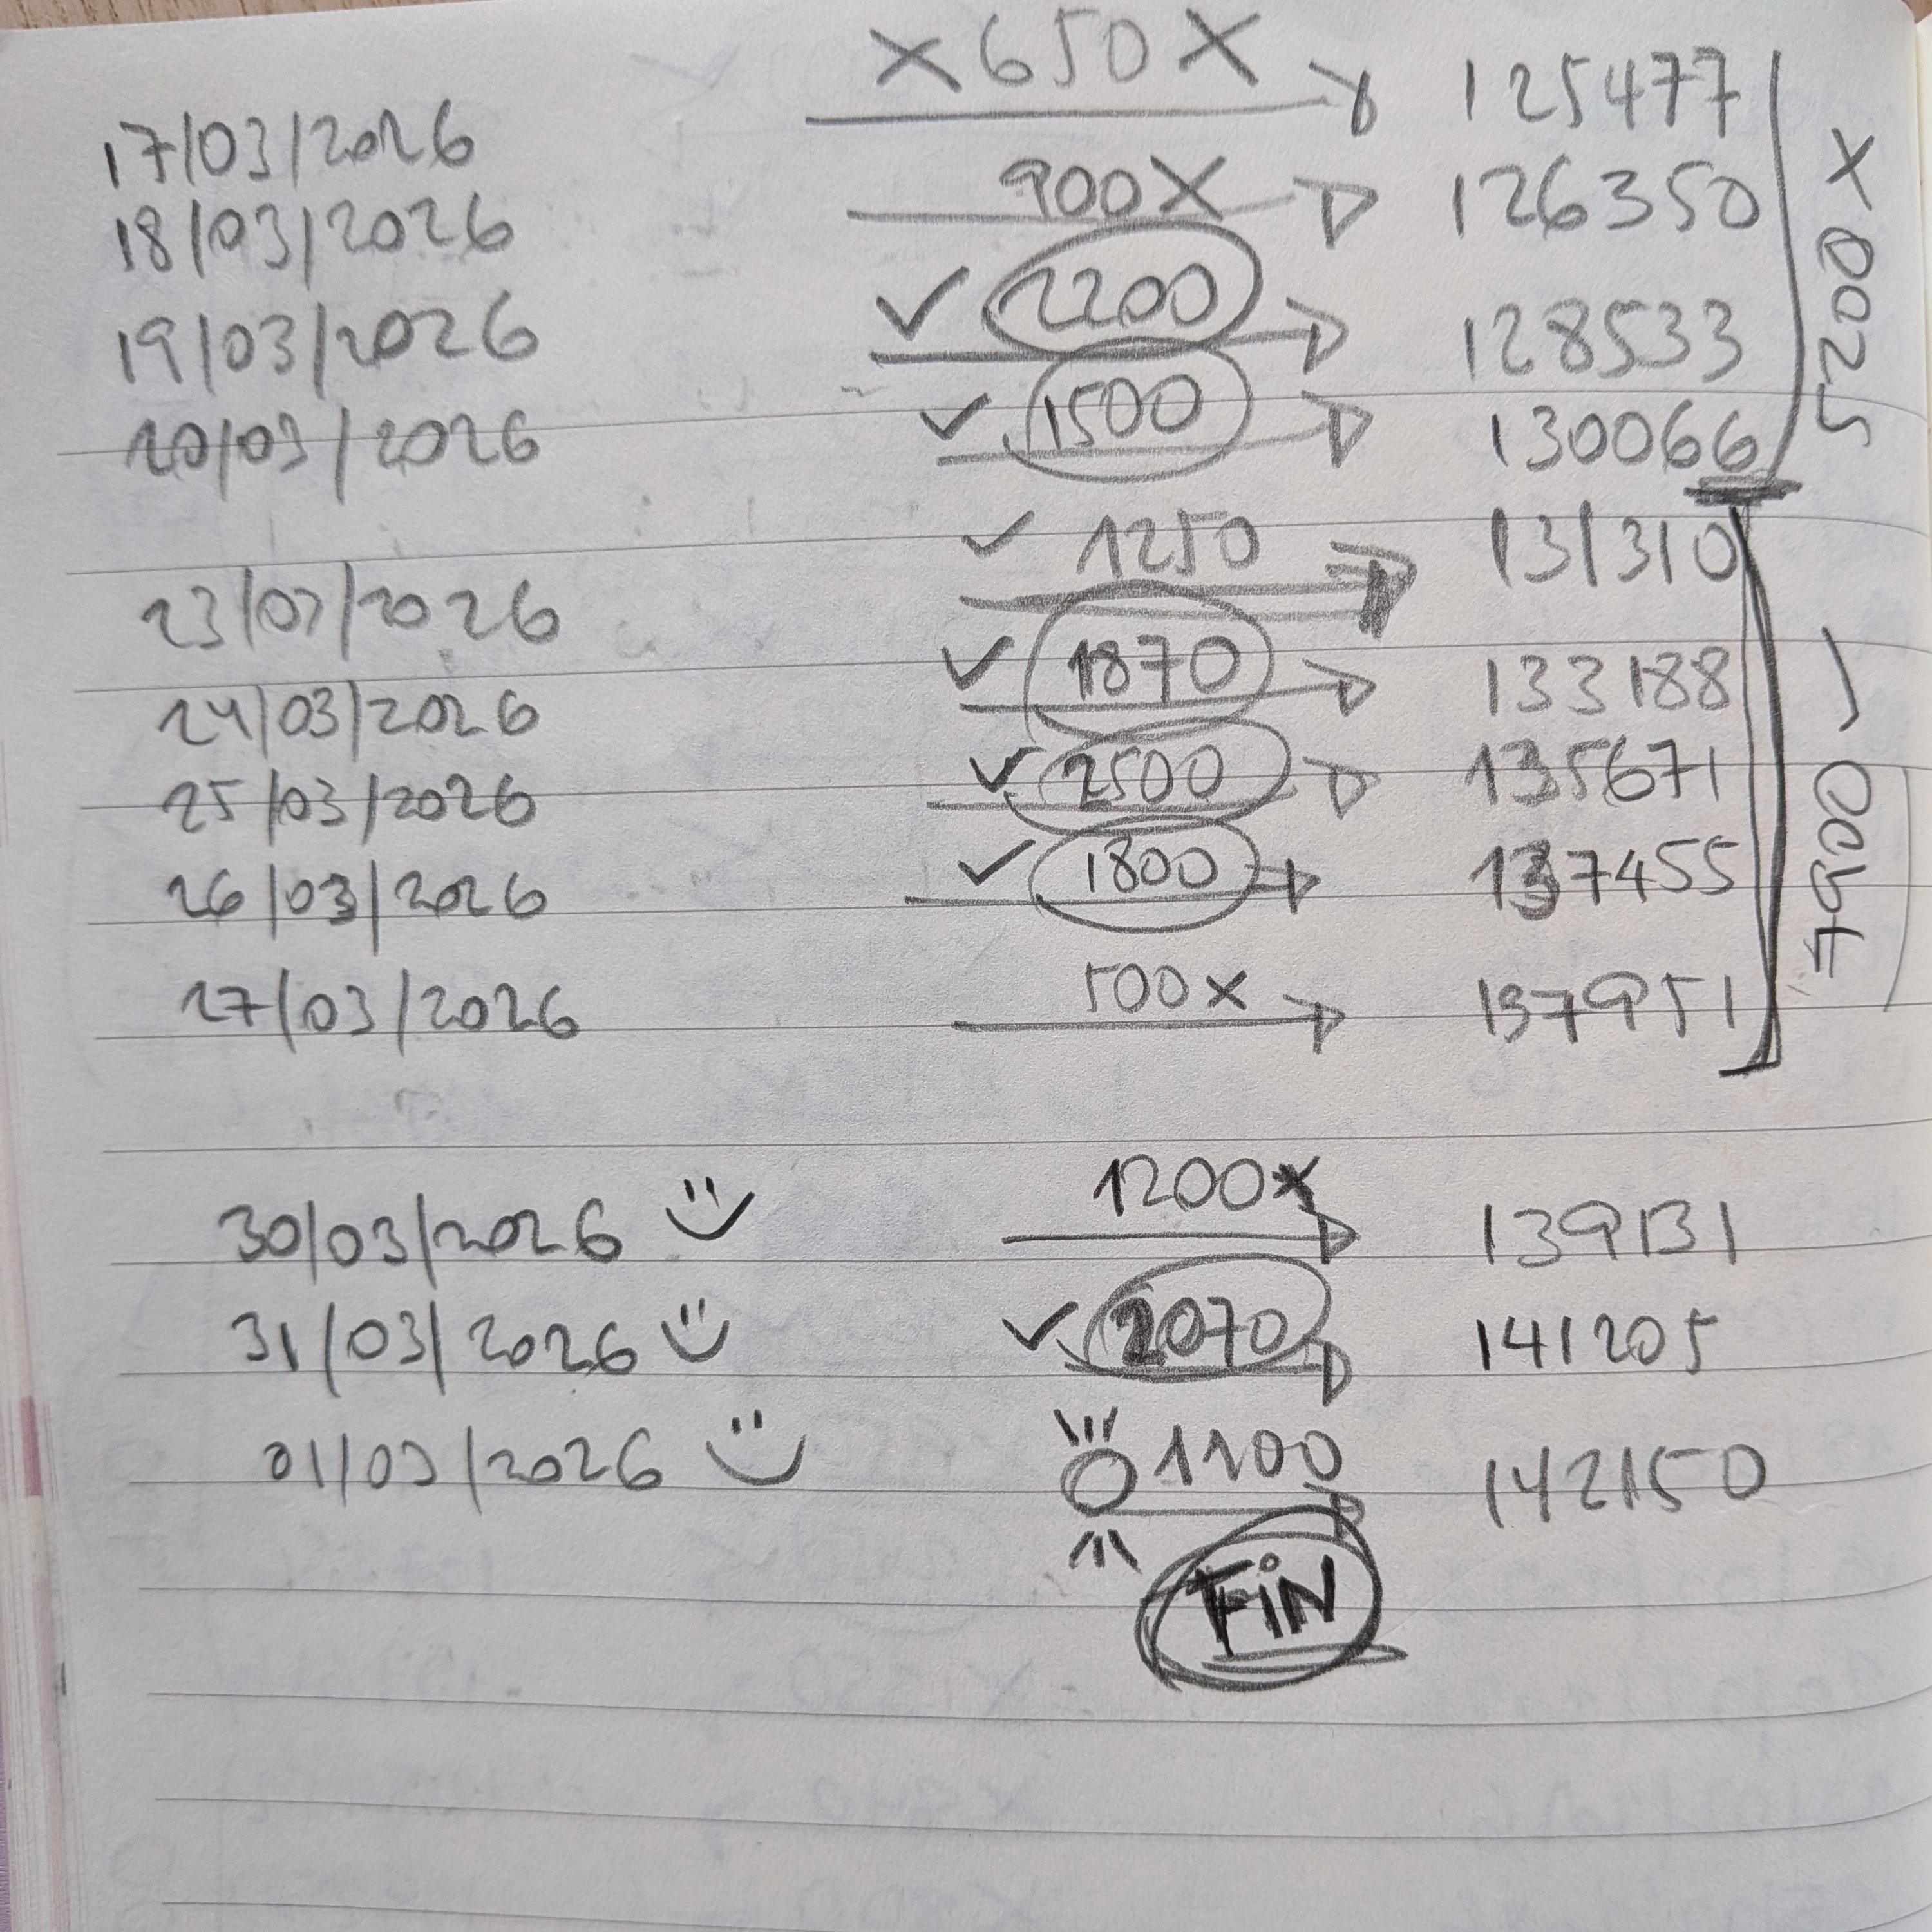 17/03/2026 X 650 X → 125477
18/03/2026 900 X → 126350
19/03/2026 ✓ 2200 → 128533
20/03/2026 ✓ 1500 → 130066
5200 X
23/03/2026 ✓ 1250 → 131310
24/03/2026 ✓ 1870 → 133188
25/03/2026 ✓ 2500 → 135671
26/03/2026 ✓ 1800 → 137455
27/03/2026 500 x → 137951
7900 ✓
30/03/2026 1200 x → 139131
31/03/2026 ✓ 2070 → 141205
01/03/2026 1200 → 142150
FiN